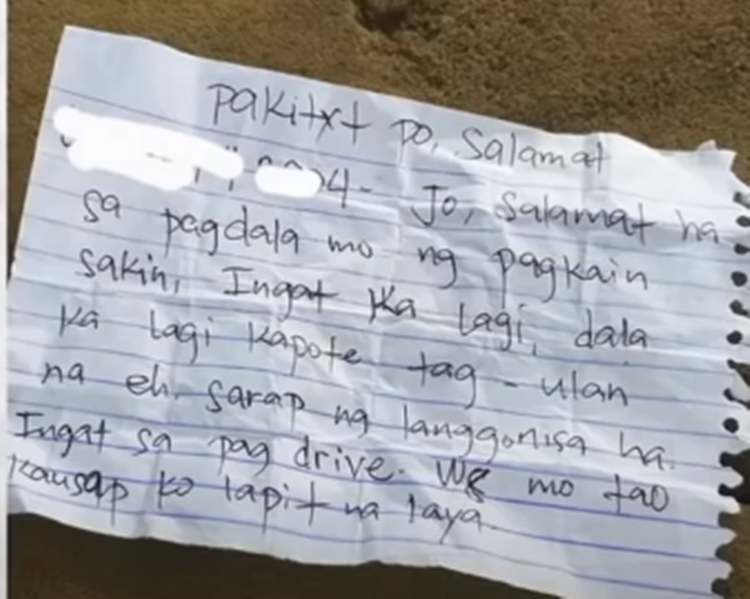 Pakitxt po, Salamat
4- Jo, Salamat ha
sa pagdala mo ng pagkain
sakin, Ingat ka lagi, dala
ka lagi kapote tag-ulan
na eh. sarap ng langgonisa ha.
Ingat sa pag drive. mo tao
kausap ko lapit na laya.